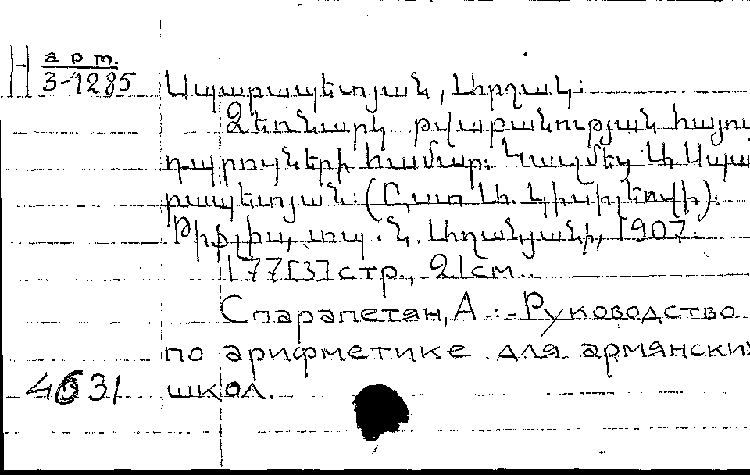 Н арм.
3-1285
Սպարապետյան, Արշակ:
Ձեռնարկ թվաբանության հայոց
դպրոցների համար: Կազմեց Ա. Սպա
րապետյան: (Ըստ Ա. Կիսիլեովի):
Թիֆլիս, տպ. Ն. Աղանյանի, 1907.
177[3] стр., 21 см.
Спарапетян, А. Руководство
по арифметике для армянских
4631 школ.